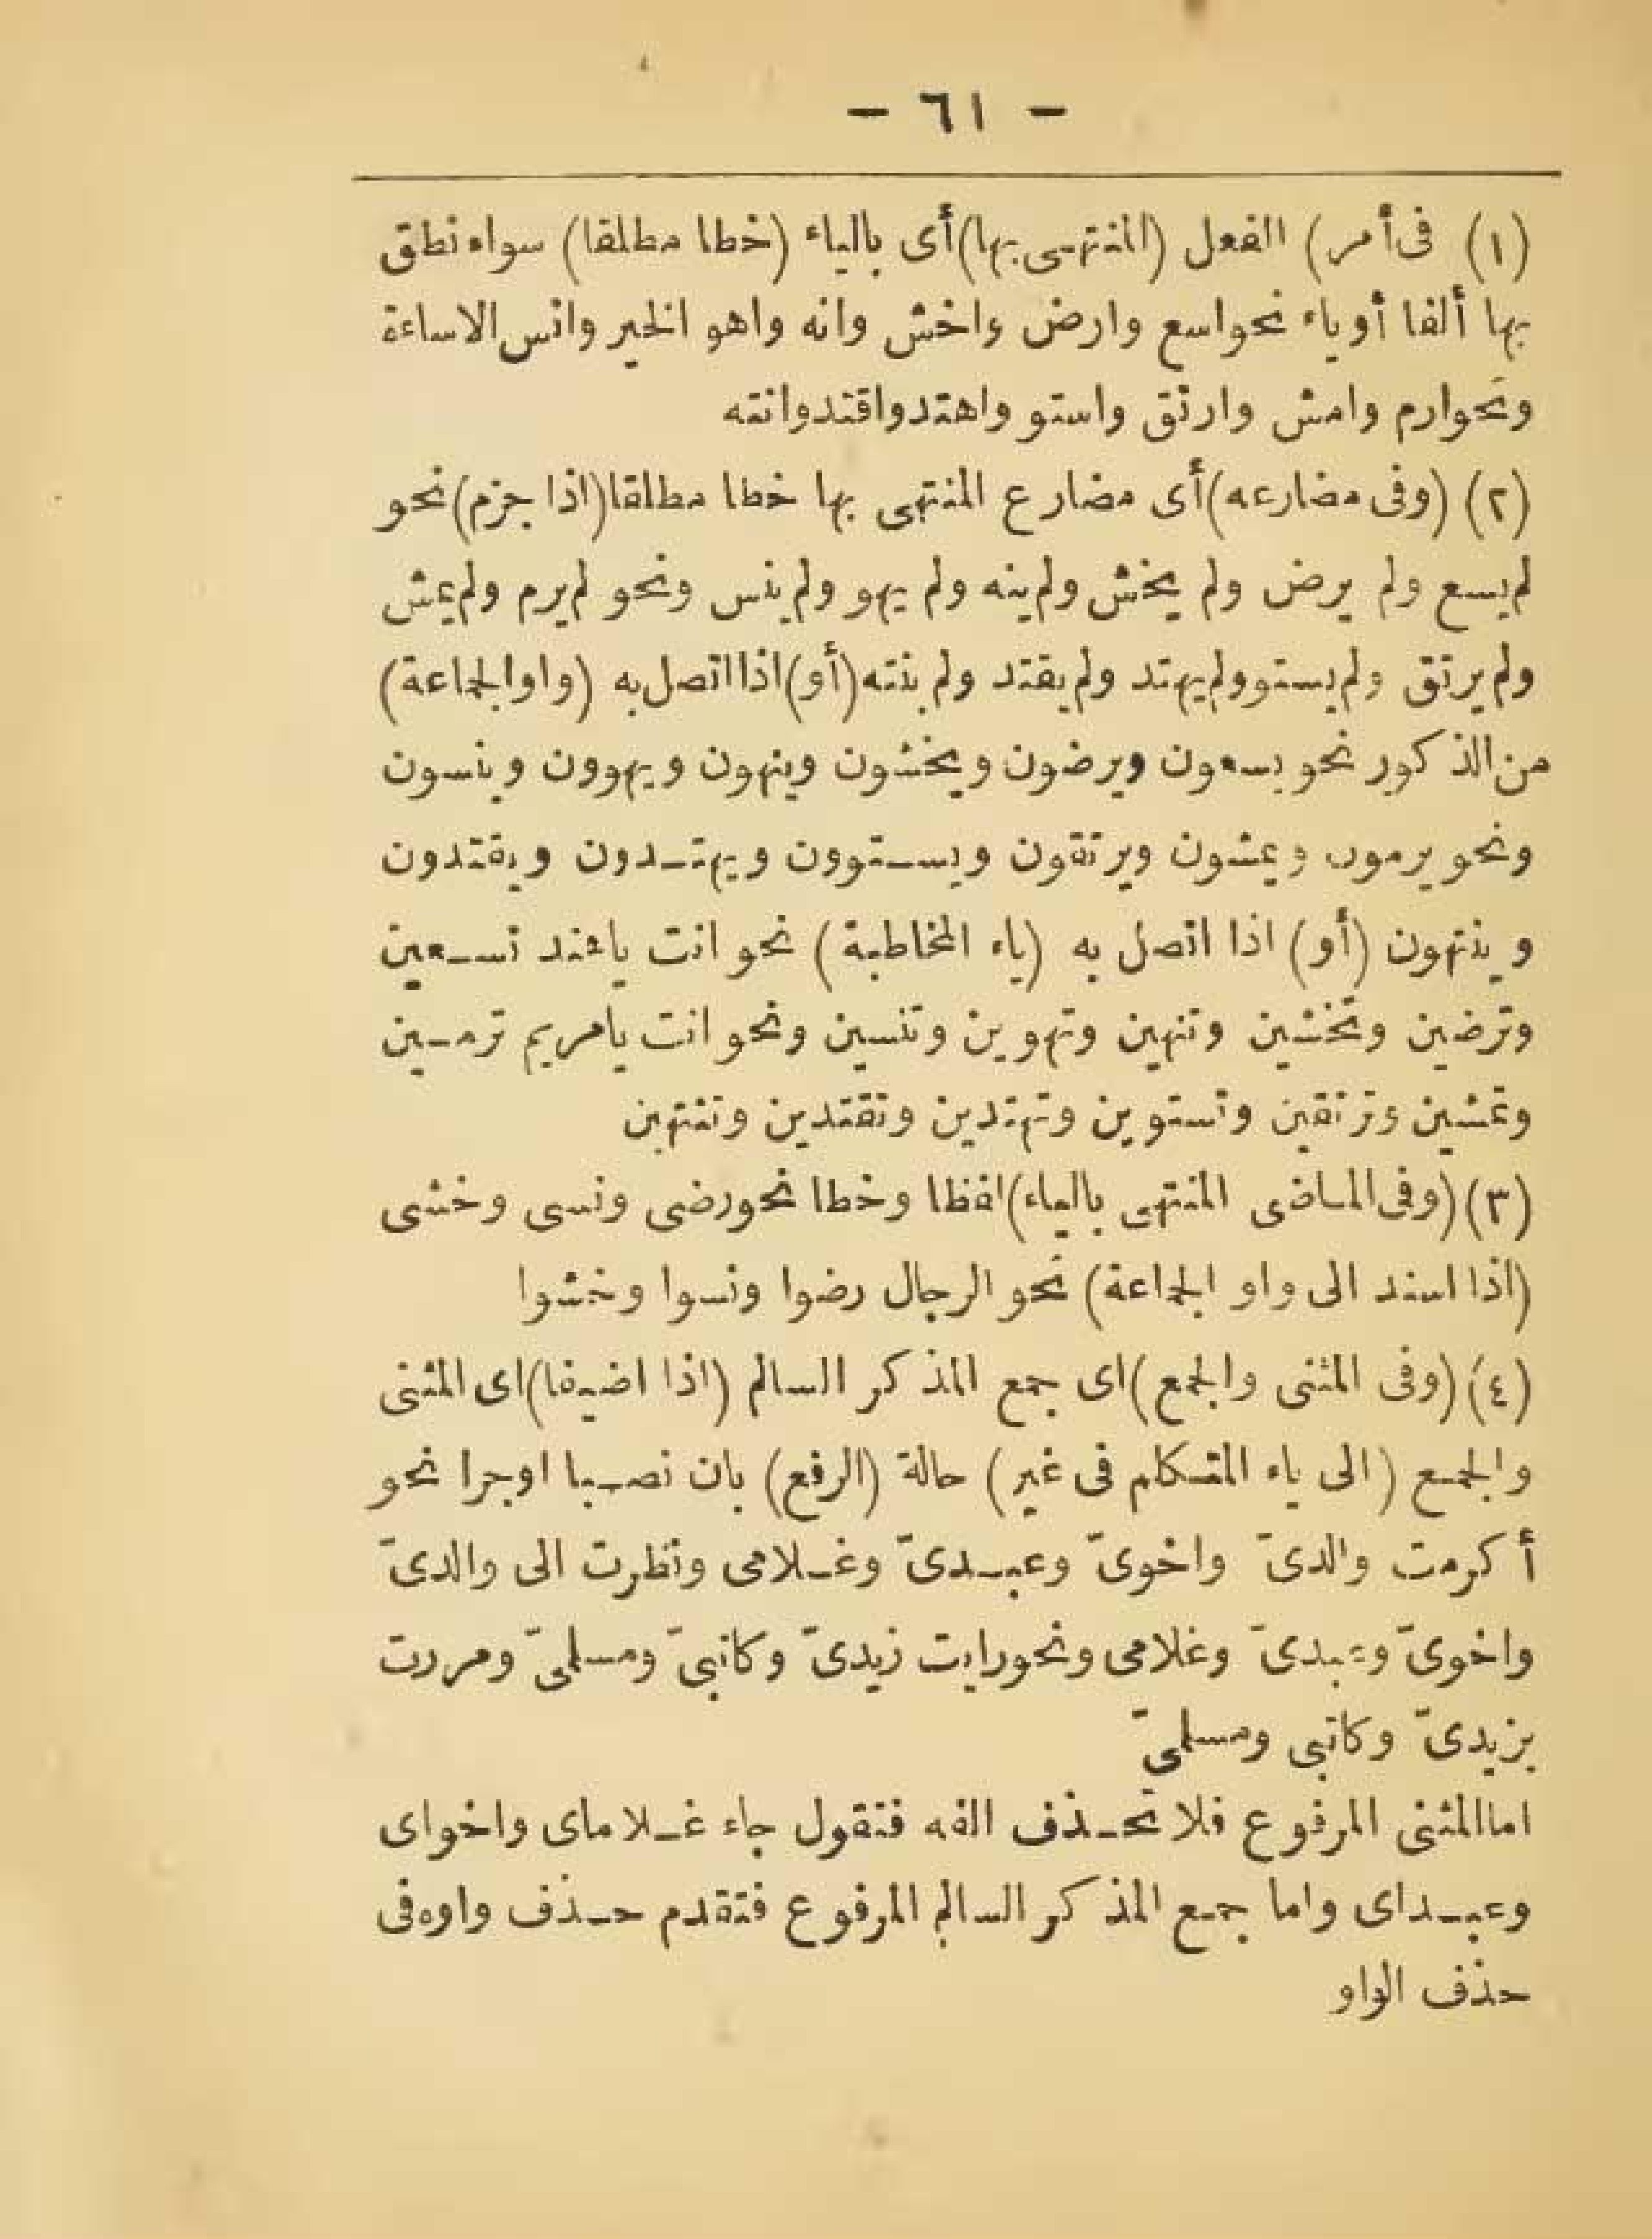 — ٦١ —
(١) فى أمر) الفعل (المنتهى بها) أى بالياء (خطا مطلقا) سواء نطق
بها ألفا أو ياء نحو اسع وارض واخش وانه واهو الخير وانس الاساءة
ونحو ارم وامش وارتق واستو واهتد واقتد وانته
(٢) (وفى مضارعه) أى مضارع المنتهى بها خطا مطلقا (اذا جزم) نحو
لم يسع ولم يرض ولم يخش ولم ينه ولم يهو ولم ينس ونحو لم يرم ولم يمش
ولم يرتق ولم يستو ولم يهتد ولم يقتد ولم ينته (أو) اذا اتصل به (واو الجماعة)
من الذكور نحو يسعون ويرضون ويخشون وينهون ويهوون وينسون
ونحو يرمون ويمشون ويرتقون ويستوون ويهتدون ويقتدون
وينتهون (أو) اذا اتصل به (ياء المخاطبة) نحو انت ياهند تسعين
وترضين وتخشين وتنهين وتهوين وتنسين ونحو انت يامريم ترمين
وتمشين وترتقين وتستوين وتهتدين وتقتدين وتنتهين
(٣) (وفى الماضى المنتهى بالياء) لفظا وخطا نحو رضى ونسى وخشى
(اذا اسند الى واو الجماعة) نحو الرجال رضوا ونسوا وخشوا
(٤) (وفى المثنى والجمع) اى جمع المذكر السالم (اذا اضيفا) اى المثنى
والجمع (الى ياء المتكلم فى غير) حالة (الرفع) بان نصبا او جرا نحو
أكرمت والدىّ واخوىّ وعبدىّ وغلامى ونظرت الى والدىّ
واخوىّ وعبدىّ وغلامى ونحو رايت زيدىّ وكاتبىّ ومسلمىّ ومررت
بزيدىّ وكاتبى ومسلمىّ
اما المثنى المرفوع فلا تحذف الفه فتقول جاء غلاماى واخواى
وعبداى واما جمع المذكر السالم المرفوع فتقدم حذف واوه فى
حذف الواو